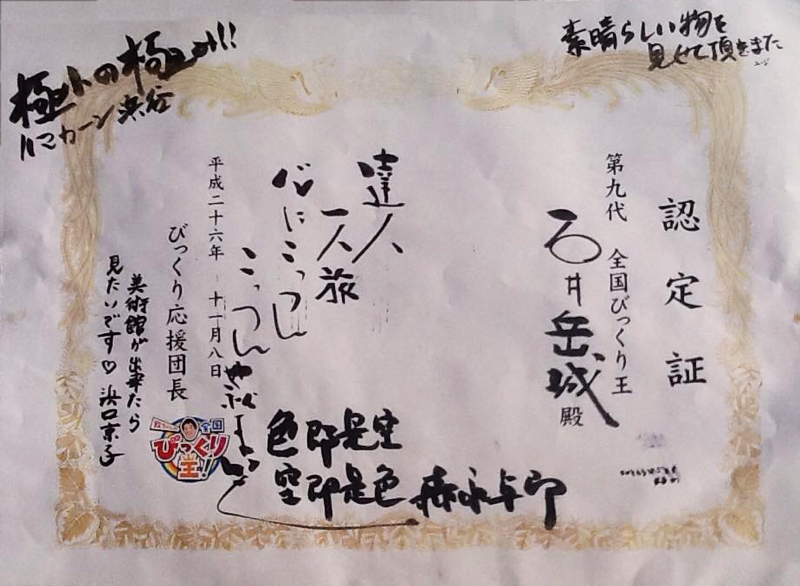 認定証
第九代 全国びっくり王
石井岳城殿
達人
一人旅
心にこっつん
こっつん
平成二十六年 十一月八日
びっくり応援団長
素晴らしい物を
見せて頂きました
極上の極み!!
ハマカーン浜谷
美術館が出来たら
見たいです♡ 浜口京子
色即是空
空即是色 森永卓郎
全国
びっくり
王!